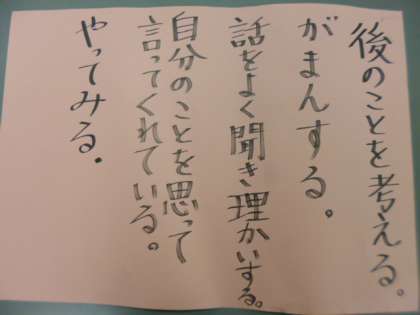 後のことを考える。
がまんする。
話をよく聞き理かいする。
自分のことを思って
言ってくれている。
やってみる.